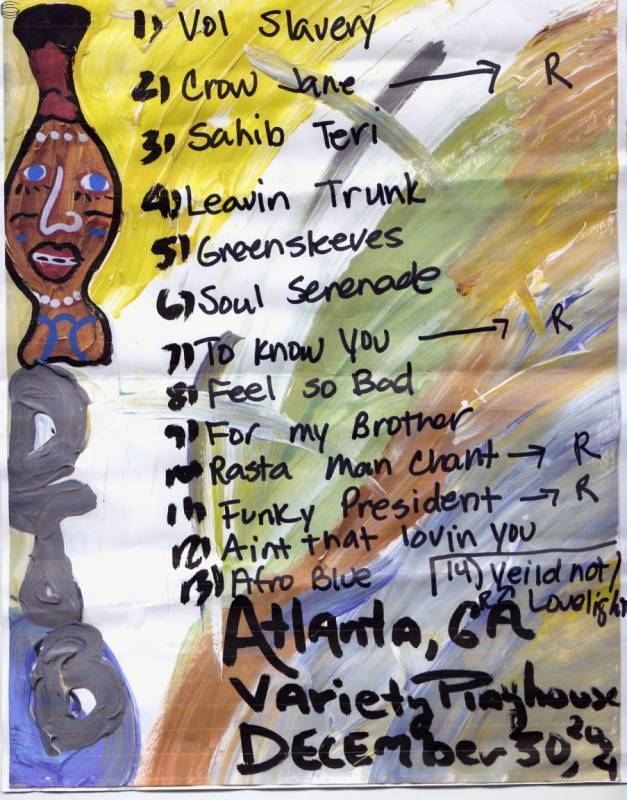 1) Vol Slavery
2) Crow Jane → R
3) Sahib Teri
4) Leavin Trunk
5) Greensleeves
6) Soul Serenade
7) To Know You → R
8) Feel so Bad
9) For my Brother
10) Rasta Man Chant → R
11) Funky President → R
12) Aint that lovin you
13) Afro Blue
14) Yeild not/
R↗ Lovelight
Atlanta, GA
Variety Playhouse
DECEMber 30,